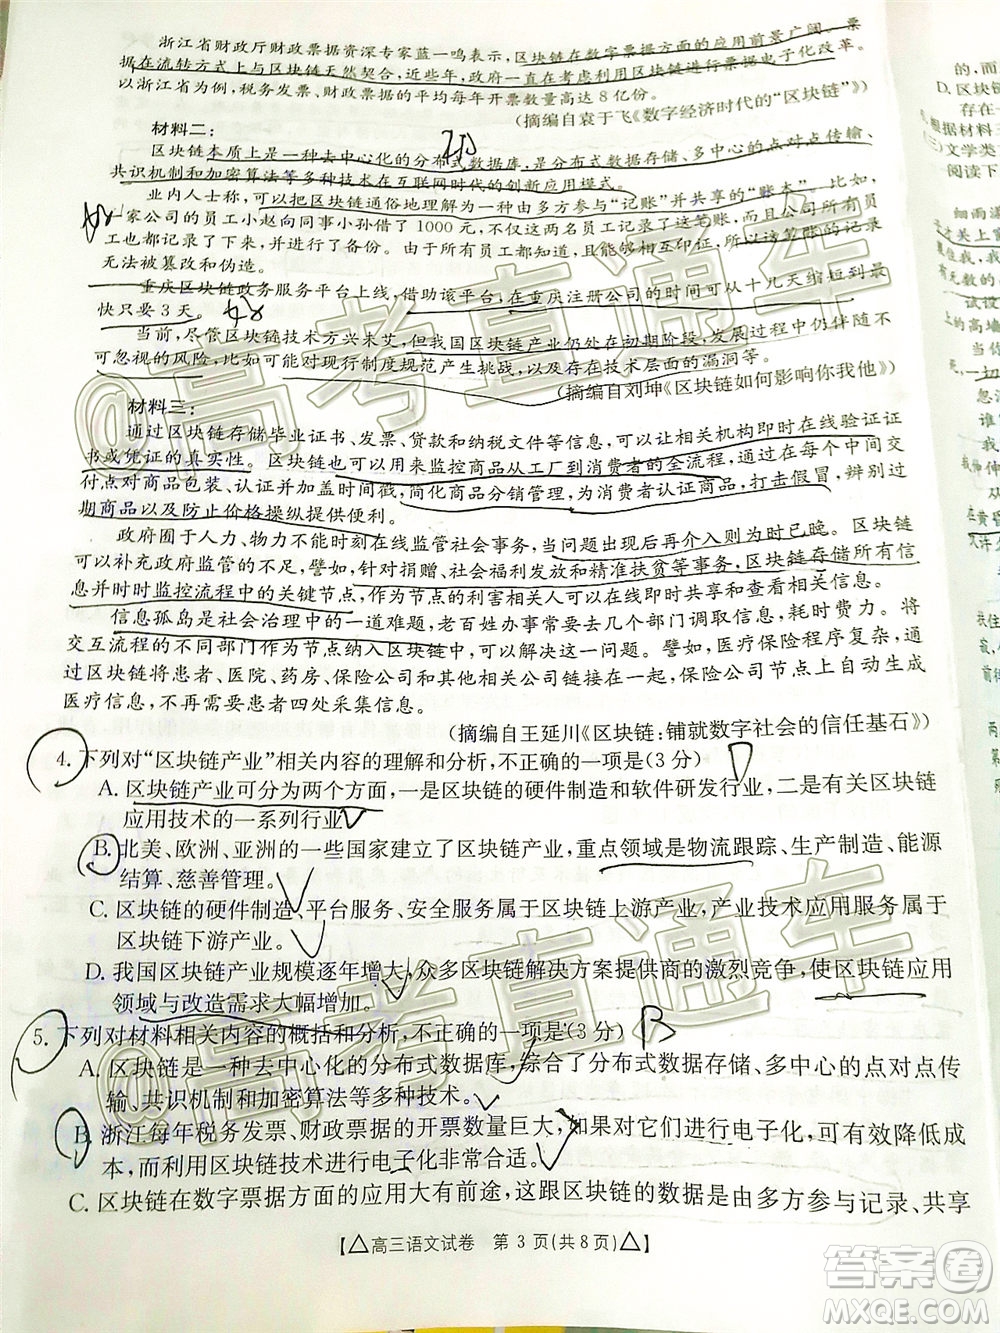 浙江省财政厅财政票据资深专家蓝一鸣表示,区块链在数字票据方面的应用前景广阔。票
据在流转方式上与区块链天然契合,近些年,政府一直在考虑利用区块链进行票据电子化改革。
以浙江省为例,税务发票、财政票据的平均每年开票数量高达8亿份。
(摘编自袁于飞《数字经济时代的“区块链”》)
材料二:
区块链本质上是一种去中心化的分布式数据库,是分布式数据存储、多中心的点对点传输、
共识机制和加密算法等多种技术在互联网时代的创新应用模式。
业内人士称,可以把区块链通俗地理解为一种由多方参与“记账”并共享的“账本”。比如,
一家公司的员工小赵向同事小孙借了1000元,不仅这两名员工记录了这笔账,而且公司所有员
工也都记录了下来,并进行了备份。由于所有员工都知道,又相互印证,所以这本账的记录
无法被篡改和伪造。
重庆区块链政务服务平台上线,借助该平台,在重庆注册公司的时间可从十几天缩短到最
快只要3天。
当前,尽管区块链技术方兴未艾,但我国区块链产业仍处在初期阶段,发展过程中还存在不
可忽视的风险,比如可能对现行制度规范产生挑战,以及存在技术层面的漏洞等。
(摘编自刘坤《区块链如何影响你我他》)
材料三:
通过区块链存储毕业证书、发票、贷款和纳税文件等信息,可以让相关机构即时在线验证证
书或凭证的真实性。区块链也可以用来监控商品从工厂到消费者的全流程,在每个中间交易
付点对商品包装、认证并加盖时间戳,简化商品分销管理,为消费者认证商品,打击假冒,辨别过
期商品以及防止价格操纵提供便利。
政府囿于人力、物力不能时刻在线监管社会事务,当问题出现后再介入则为时已晚。区块链
可以补充政府监管的不足,譬如,针对捐赠、社会福利发放和精准扶贫等事务,区块链存储所有信
息并时时监控流程中的关键节点,作为节点的利害相关人可以在线即时共享和查看相关信息。
信息孤岛是社会治理中的一道难题,老百姓办事要去几个部门调取信息,耗时费力。将
交互流程的不同部门作为节点纳入区块链可以解决这一问题。譬如,医疗保险程序复杂,通过
区块链将患者、医院、药房、保险公司和其他相关公司链接在一起,保险公司节点上自动生成
医疗信息,不再需要患者四处采集信息。
(摘编自王延川《区块链:铺就数字社会的信任基石》)
4. 下列对“区块链产业”相关内容的理解和分析,不正确的一项是(3分) D
A. 区块链产业可分为两个方面,一是区块链的硬件制造和软件研发行业,二是有关区块链
应用技术的一系列行业
B. 北美、欧洲、亚洲的一些国家建立了区块链产业,重点领域是物流跟踪、生产制造、能源
结算、慈善管理。
C. 区块链的硬件制造、平台服务、安全服务属于区块链上游产业,产业技术应用服务属于
区块链下游产业。
D. 我国区块链产业规模逐年增大,众多区块链解决方案提供商的激烈竞争,使区块链应用
领域与改造需求大幅增加。
5. 下列对材料相关内容的概括和分析,不正确的一项是(3分) B
A. 区块链是一种去中心化的分布式数据库,综合了分布式数据存储、多中心的点对点传
输、共识机制和加密算法等多种技术。
B. 浙江每年税务发票、财政票据的开票数量巨大,如果对它们进行电子化,可有效降低成
本,而利用区块链技术进行电子化非常合适。
C. 区块链在数字票据方面的应用大有前途,这跟区块链是由多方参与记录、共享
【△高三语文试卷 第3页(共8页)△】
的,
D. 区块链
存在
根据材料三
(三)文学类
阅读下
答案圈
MXQE.COM
@高考直通车
@高考直通车